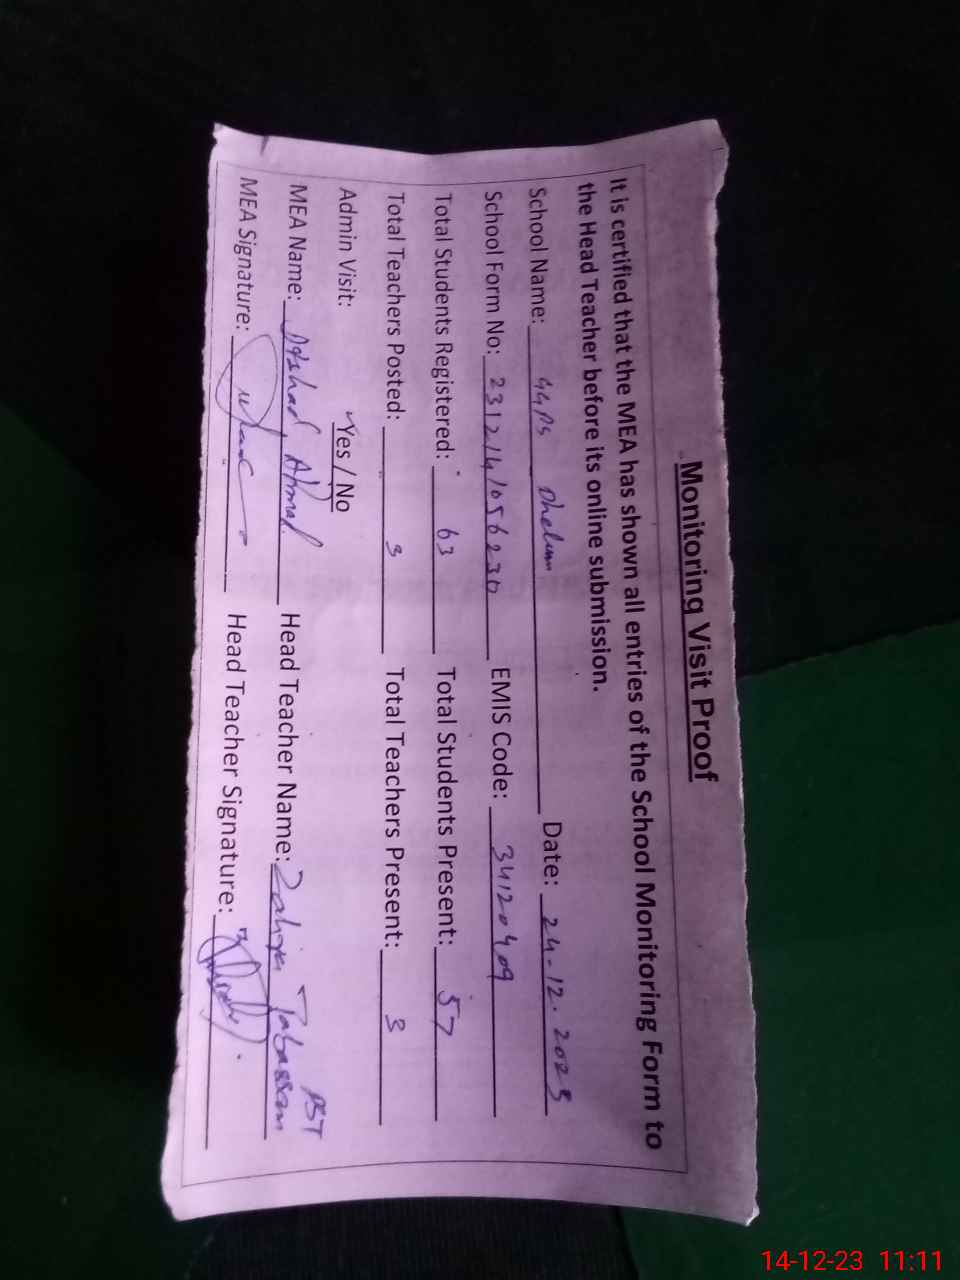 Monitoring Visit Proof
It is certified that the MEA has shown all entries of the School Monitoring Form to
the Head Teacher before its online submission.
School Name: GGPS Date: 24-12-2023
School Form No: 231214/056230 EMIS Code: 34120409
Total Students Registered: 63 Total Students Present: 57
Total Teachers Posted: 3 Total Teachers Present: 3
Admin Visit: Yes / No
PST
MEA Name: Ahmad Head Teacher Name: Tabassam
MEA Signature: Head Teacher Signature:
14-12-23 11:11